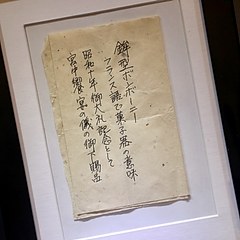 鉾型ボンボニー
フランス語で菓子器の意味
昭和十年御大礼記念として
宮中饗宴の儀の御下賜品